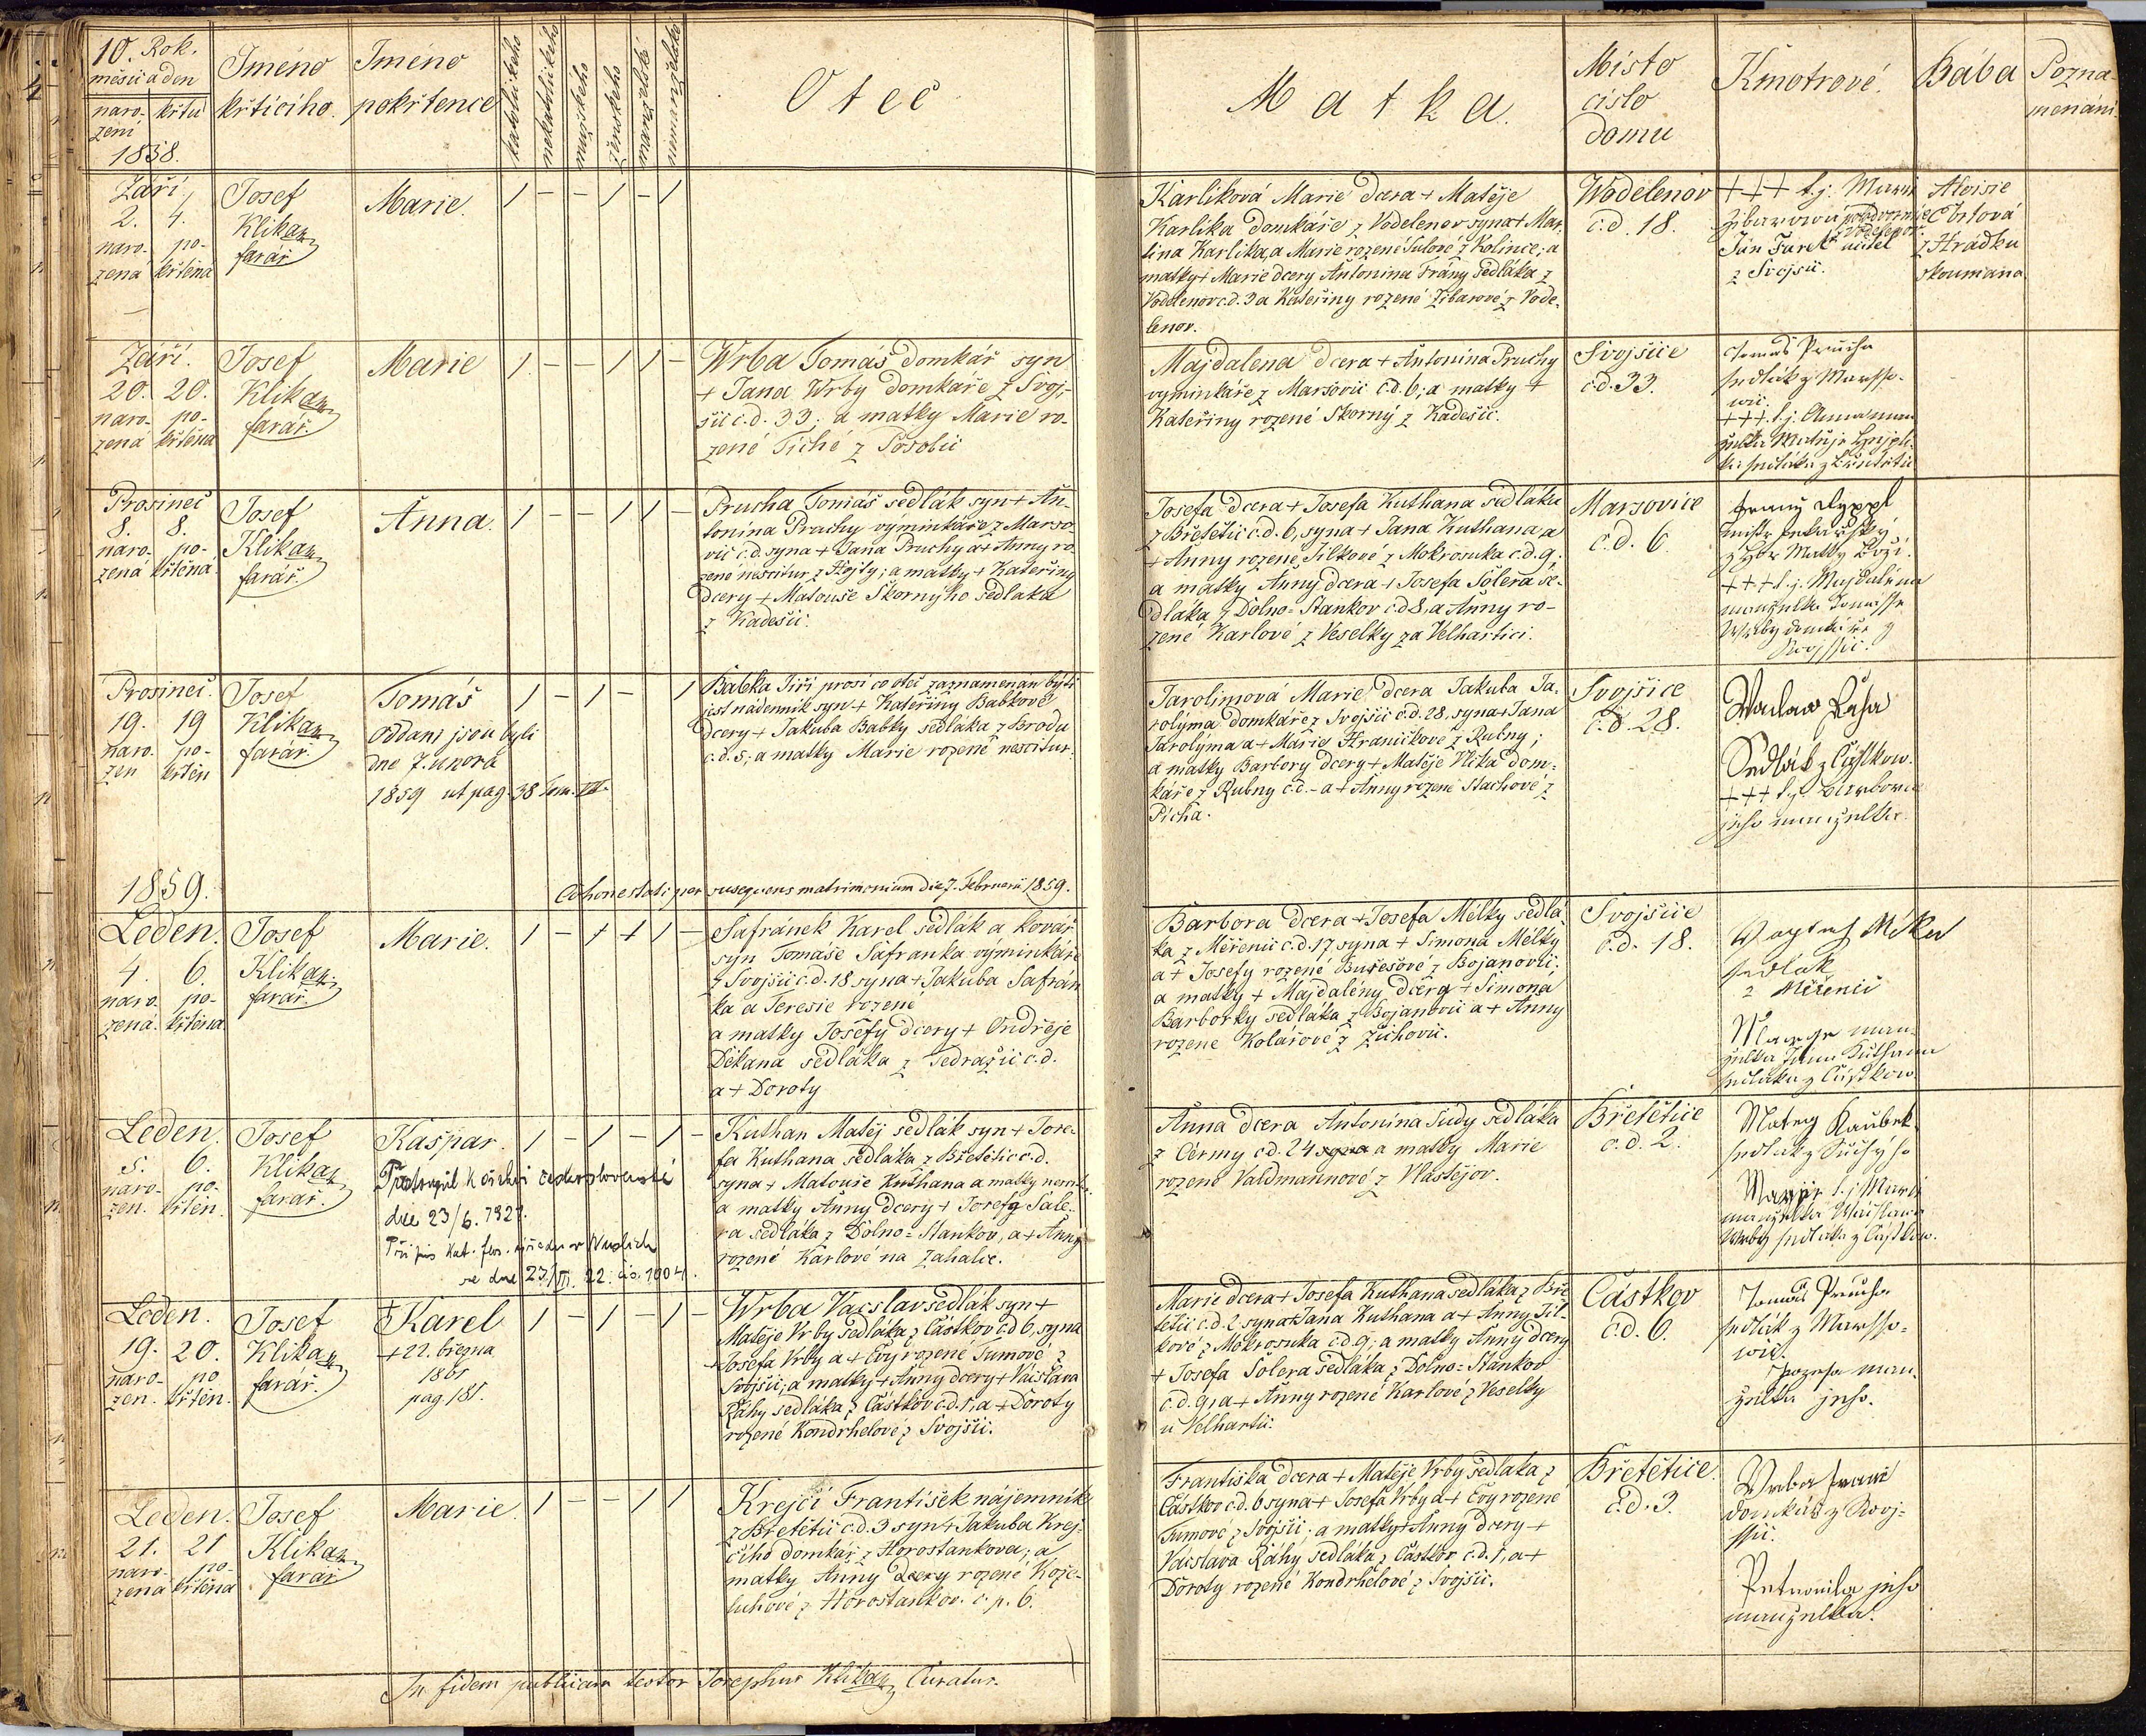 10. Rok.
měsíc a den
naro-
zení
křtu
1858.
Iméno
křtícího.
Iméno
pokřtence
katolického
nekatolického
mužského
ženského
manželské
nemanželské
Otec
Matka.
Místo
číslo
domu
Kmotrové.
Bába
Pozna-
menání.
Září.
2. 4.
naro- po-
zena křtěna
Josef
Klikar
farář
Marie.
1 – – 1 – 1
Karlíková Marie dcera + Matěje
Karlíka domkáře z Vodelenov syna + Mar-
tina Karlíka, a Marie rozené z Kolince; a
matky + Marie dcery Antonína Frány sedláka z
Vodelenov c.d. 3 a Kateřiny rozené Žibarové z Vode-
lenov.
Wodelenov
č.d. 18.
+++ t.j. Marie
Jan Turek učitel
z Svojšic.
Aloisie
Ebrtová
z Hrádku
skoumaná
Září.
20. 20.
naro- po-
zena křtěna
Josef
Klikar
farář.
Marie
1 – – 1 1 –
Wrba Tomáš domkář syn
+ Jana Wrby domkáře z Svoj-
šic c.d. 33; a matky Marie ro-
zené Tiché z Sosobic
Majdalena dcera + Antonína Pruchy
výminkáře z Maršovic č.d. 6; a matky +
Kateřiny rozené Škorný z Kadešic.
Svojšice
č.d. 33.
Tomáš Průcha
sedlák z Marsso-
wic.
+++ t.j. Anna man-
želka Matěje
Prosinec
8. 8.
naro- po-
zená křtěna.
Josef
Klikar
farář.
Anna.
1 – – 1 1 –
Prucha Tomáš sedlák syn + An-
tonína Pruchy výminkáře z Maršo-
vic č.d. syna + Jana Pruchy a + Anny ro-
zené nescitur z Hojty; a matky + Kateřiny
dcery + Matouše Škornýho sedláka
z Kadešic.
Josefa dcera + Josefa Kuthana sedláka
z Břetětic č.d. 6, syna + Jana Kuthana, a
+ Anny rozené Jílkové z Mokrosuka c.d. 9;
a matky Anny dcera + Josefa Solera se-
dláka z Dolno-Stankov č.d 8, a Anny ro-
zené Karlové z Veselky za Velhartici.
Marsovice
č.d. 6.
z Hor Matky Boží.
+++ t.j. Majdaléna
manželka Tomásse
Wrby domkáře z
Swojssic.
Prosinec.
19. 19
naro- po-
zen křtěn
Josef
Klikar
farář.
Tomáš
Oddani jsou byli
dne 7. února
1859 ut pag. 38 Tom. VI.
1 – 1 – 1
Babka Jiří prosí co otec zaznamenán býti
jest nádenník syn + Kateřiny Babkové
dcery + Jakuba Babky sedláka z Brodu
c.d. 5; a matky Marie rozené nescitur.
Jarolimová Marie dcera Jakuba Ja-
rolýma domkáře z Svojšic č.d. 28, syna + Jana
Jarolýma a + Marie Hraničkové z Rubny;
a matky Barbory dcery + Matěje Vlčka dom-
káře z Rubny č.d. – a + Anny rozené Stachové z
Pícha.
Svojšice
č.d. 28.
Waclaw Ráha
Sedlák z Částkow.
+++ t.j. Barbora
jeho manzelka.
1859.
Cohonestati per susequens matrimonium die 7. Februarii 1859.
Leden.
4. 6.
naro. po-
zená. křtěna
Josef
Klikar
farář.
Marie.
1 – + + 1 –
Safránek Karel sedlák a kovář
syn Tomáše Šafránka výminkáře
z Svojšic č.d. 18 syna + Jakuba Safrán
ka a Teresie rozené
a matky Josefy dcery + Ondřeje
Děkana sedláka z Jedražic c.d.
a + Doroty
Barbora dcera + Josefa Mélky sedlá-
ka z Měřenic c.d. 17 syna + Simona Mélky
a + Josefy rozené Burešové z Bojanovic;
a matky + Majdalény dcera + Simona
Barborky sedláka z Bojanovic a + Anny
rozené Kolářové z Žichovic.
Svojšice
č.d. 18.
sedlák
z Měřenic
man-
želka Jana Kuthana
sedláka z Částkow
Leden.
5. 6.
naro- po-
zen. křtěn.
Josef
Klikar
farář.
Kašpar.
Přestoupil k církvi československé
dne 23/6. 1921.
Přípis kat. far. úřadu v Nuslích
ze dne 23./VI. 22. čís. 1904.
1 – 1 – 1 –
Kuthan Matěj sedlák syn + Jose-
fa Kuthana sedláka z Břetětic c.d.
syna + Matouše Kuthana a matky
a matky Anny dcery + Josefa Sole-
ra sedláka z Dolno-Stankov, a + Anny
rozené Karlové na Zahalce.
Anna dcera Antonína Sudy sedláka
z Cermy c.d. 24 syna a matky Marie
rozené Valdmannové z Vlastějov.
Břetětice
c.d. 2.
Matěj Kaubek
sedlák z
t.j. Marie
manželka Wácslawa
Wrby sedláka z Částkow.
Leden.
19. 20.
naro- po
zen. křtěn.
Josef
Klikar
farář.
+ Karel
+ 22. března
1861
pag. 181.
1 – 1 – 1 –
Wrba Vacslav sedlák syn +
Matěje Vrby sedláka z Částkov č.d 6, syna
+ Josefa Vrby a + Evy rozené Tumové z
Svojšic; a matky + Anny dcery + Vácslava
Ráhy sedláka z Částkov č.d. 1, a + Doroty
rozené Kondrhelové z Svojšic.
Marie dcera + Josefa Kuthana sedláka z Bře
tětic č.d. 2 syna + Jana Kuthana a + Anny Jíl-
kové z Mokrosuka č.d. 9; a matky Anny dcery
+ Josefa Solera sedláka z Dolno-Stankov
č.d. 9, a + Anny rozené Karlové z Veselky
u Velhartic.
Částkov
č.d. 6.
Tomáš Průcha
sedlák z Marsso-
wic.
Jozefa man-
želka jeho.
Leden.
21. 21
naro- po-
zena křtěna
Josef
Klikar
farář
Marie.
1 – – 1 1
Krejčí František nájemník
z Břetětic c.d. 3 syn + Jakuba Krej-
čího domkář z Horostankova; a
matky Anny dcery rozené Kože-
luhové z Horostankov. č.p. 6.
Františka dcera + Matěje Vrby sedláka z
Částkov č.d. 6 syna + Josefa Vrby a + Evy rozené
Tumové z Svojšic; a matky + Anny dcery +
Vácslava Ráhy sedláka z Částkov č.d. 1, a +
Doroty rozené Kondrhelové z Svojšic.
Břetětice.
č.d. 3.
Wrba
domkář z Swoj-
ssic.
Petronila jeho
manzelka.
In fidem publicam testor Josephus Klikar, Curatus.